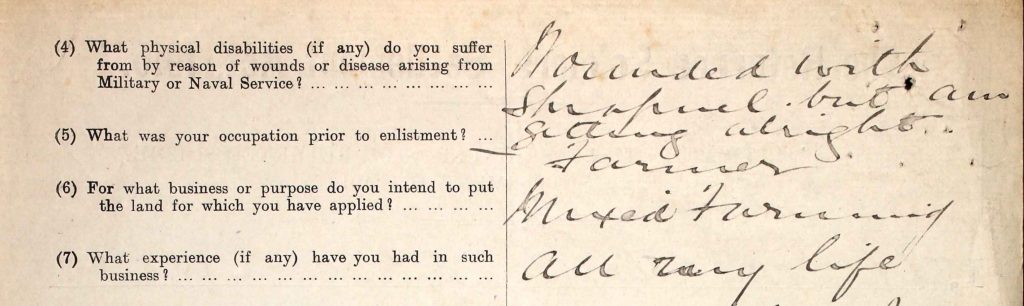 (4) What physical disabilities (if any) do you suffer
from by reason of wounds or disease arising from
Military or Naval Service? ... ... ... ... ... ... ...
Wounded with
Shrapnel but am
getting alright.
(5) What was your occupation prior to enlistment? ...
Farmer
(6) For what business or purpose do you intend to put
the land for which you have applied? ... ... ... ...
Mixed Farming
(7) What experience (if any) have you had in such
business? ... ... ... ... ... ... ... ... ... ... ... ...
All my life